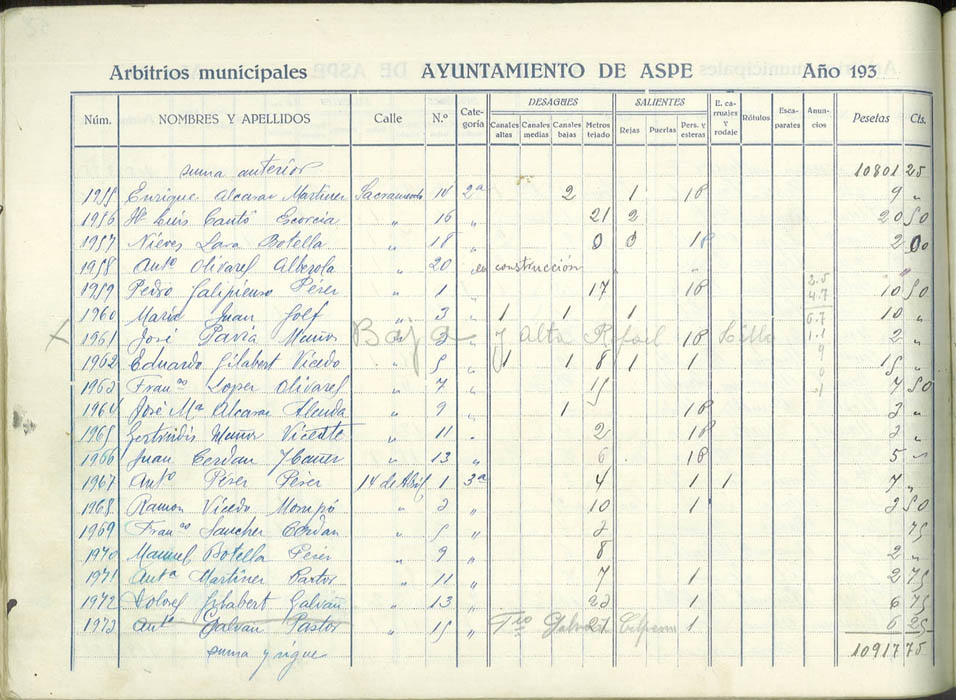 Arbitrios municipales AYUNTAMIENTO DE ASPE Año 193
Núm. NOMBRES Y APELLIDOS Calle N.º Categoría DESAGUES Canales altas Canales medias Canales bajas Metros tejado SALIENTES Rejas Puertas Pers. y esteras E. carruajes y rodaje Rótulos Escaparates Anuncios Pesetas Cts.
suma anterior 10801 25
1955 Enrique Alcaraz Martinez Sacramento 14 2ª 2 1 1P 9 „
1956 Luis Cantó Escorcia „ 16 „ 21 2 20 50
1957 Nieves Lara Botella „ 18 „ 0 0 1P 2 00
1958 Antº Olivares Alberola „ 20 „ en construcción „
1959 Pedro Galipienso Pérez „ 1 „ 17 1P 10 50
1960 Maria Juan „ 3 „ 1 1 1 10 „
1961 José Pavia Muñoz Baja y Alta 1P 2 „
1962 Eduardo Gilabert Vicedo „ 5 „ 1 1 8 1 1 15 „
1963 Franco Lopez Olivares „ 7 „ 15 7 50
1964 José Mª Alcaraz „ 9 „ 1 1P 3 „
1965 Muñoz Vicente „ 11 „ 2 1P 3 „
1966 Juan Cerdan „ 13 „ 6 1P 5 „
1967 Antº Pérez Pérez 14 de Abril 1 3ª 4 1 1 7 „
1968 Ramon Vicedo Mompó „ 3 „ 10 1 3 50
1969 Franco Sanchez Cerdan „ 5 „ 3 75
1970 Manuel Botella Perez „ 9 „ 8 2 „
1971 Antª Martinez Pastor „ 11 „ 7 1 2 75
1972 Dolores Gilabert Galvañ „ 13 „ 23 1 6 75
1973 Antº Galvañ Pastor „ 15 „ 21 1 6 25
suma y sigue 10917 75